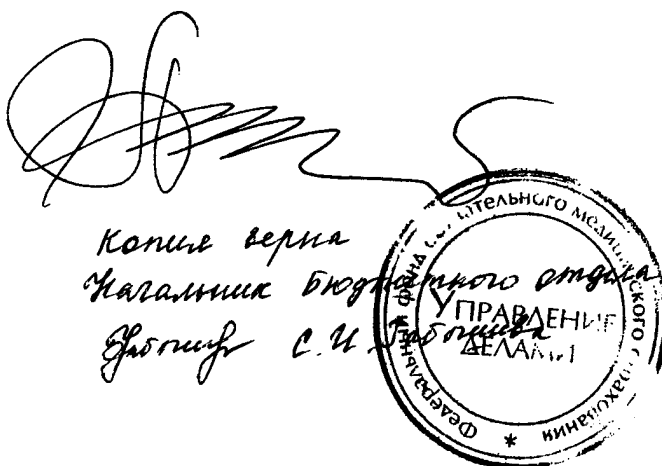 Копия верна
Начальник Бюджетного отдела
С.И.
Федеральный фонд обязательного медицинского страхования
УПРАВЛЕНИЕ
ДЕЛАМИ